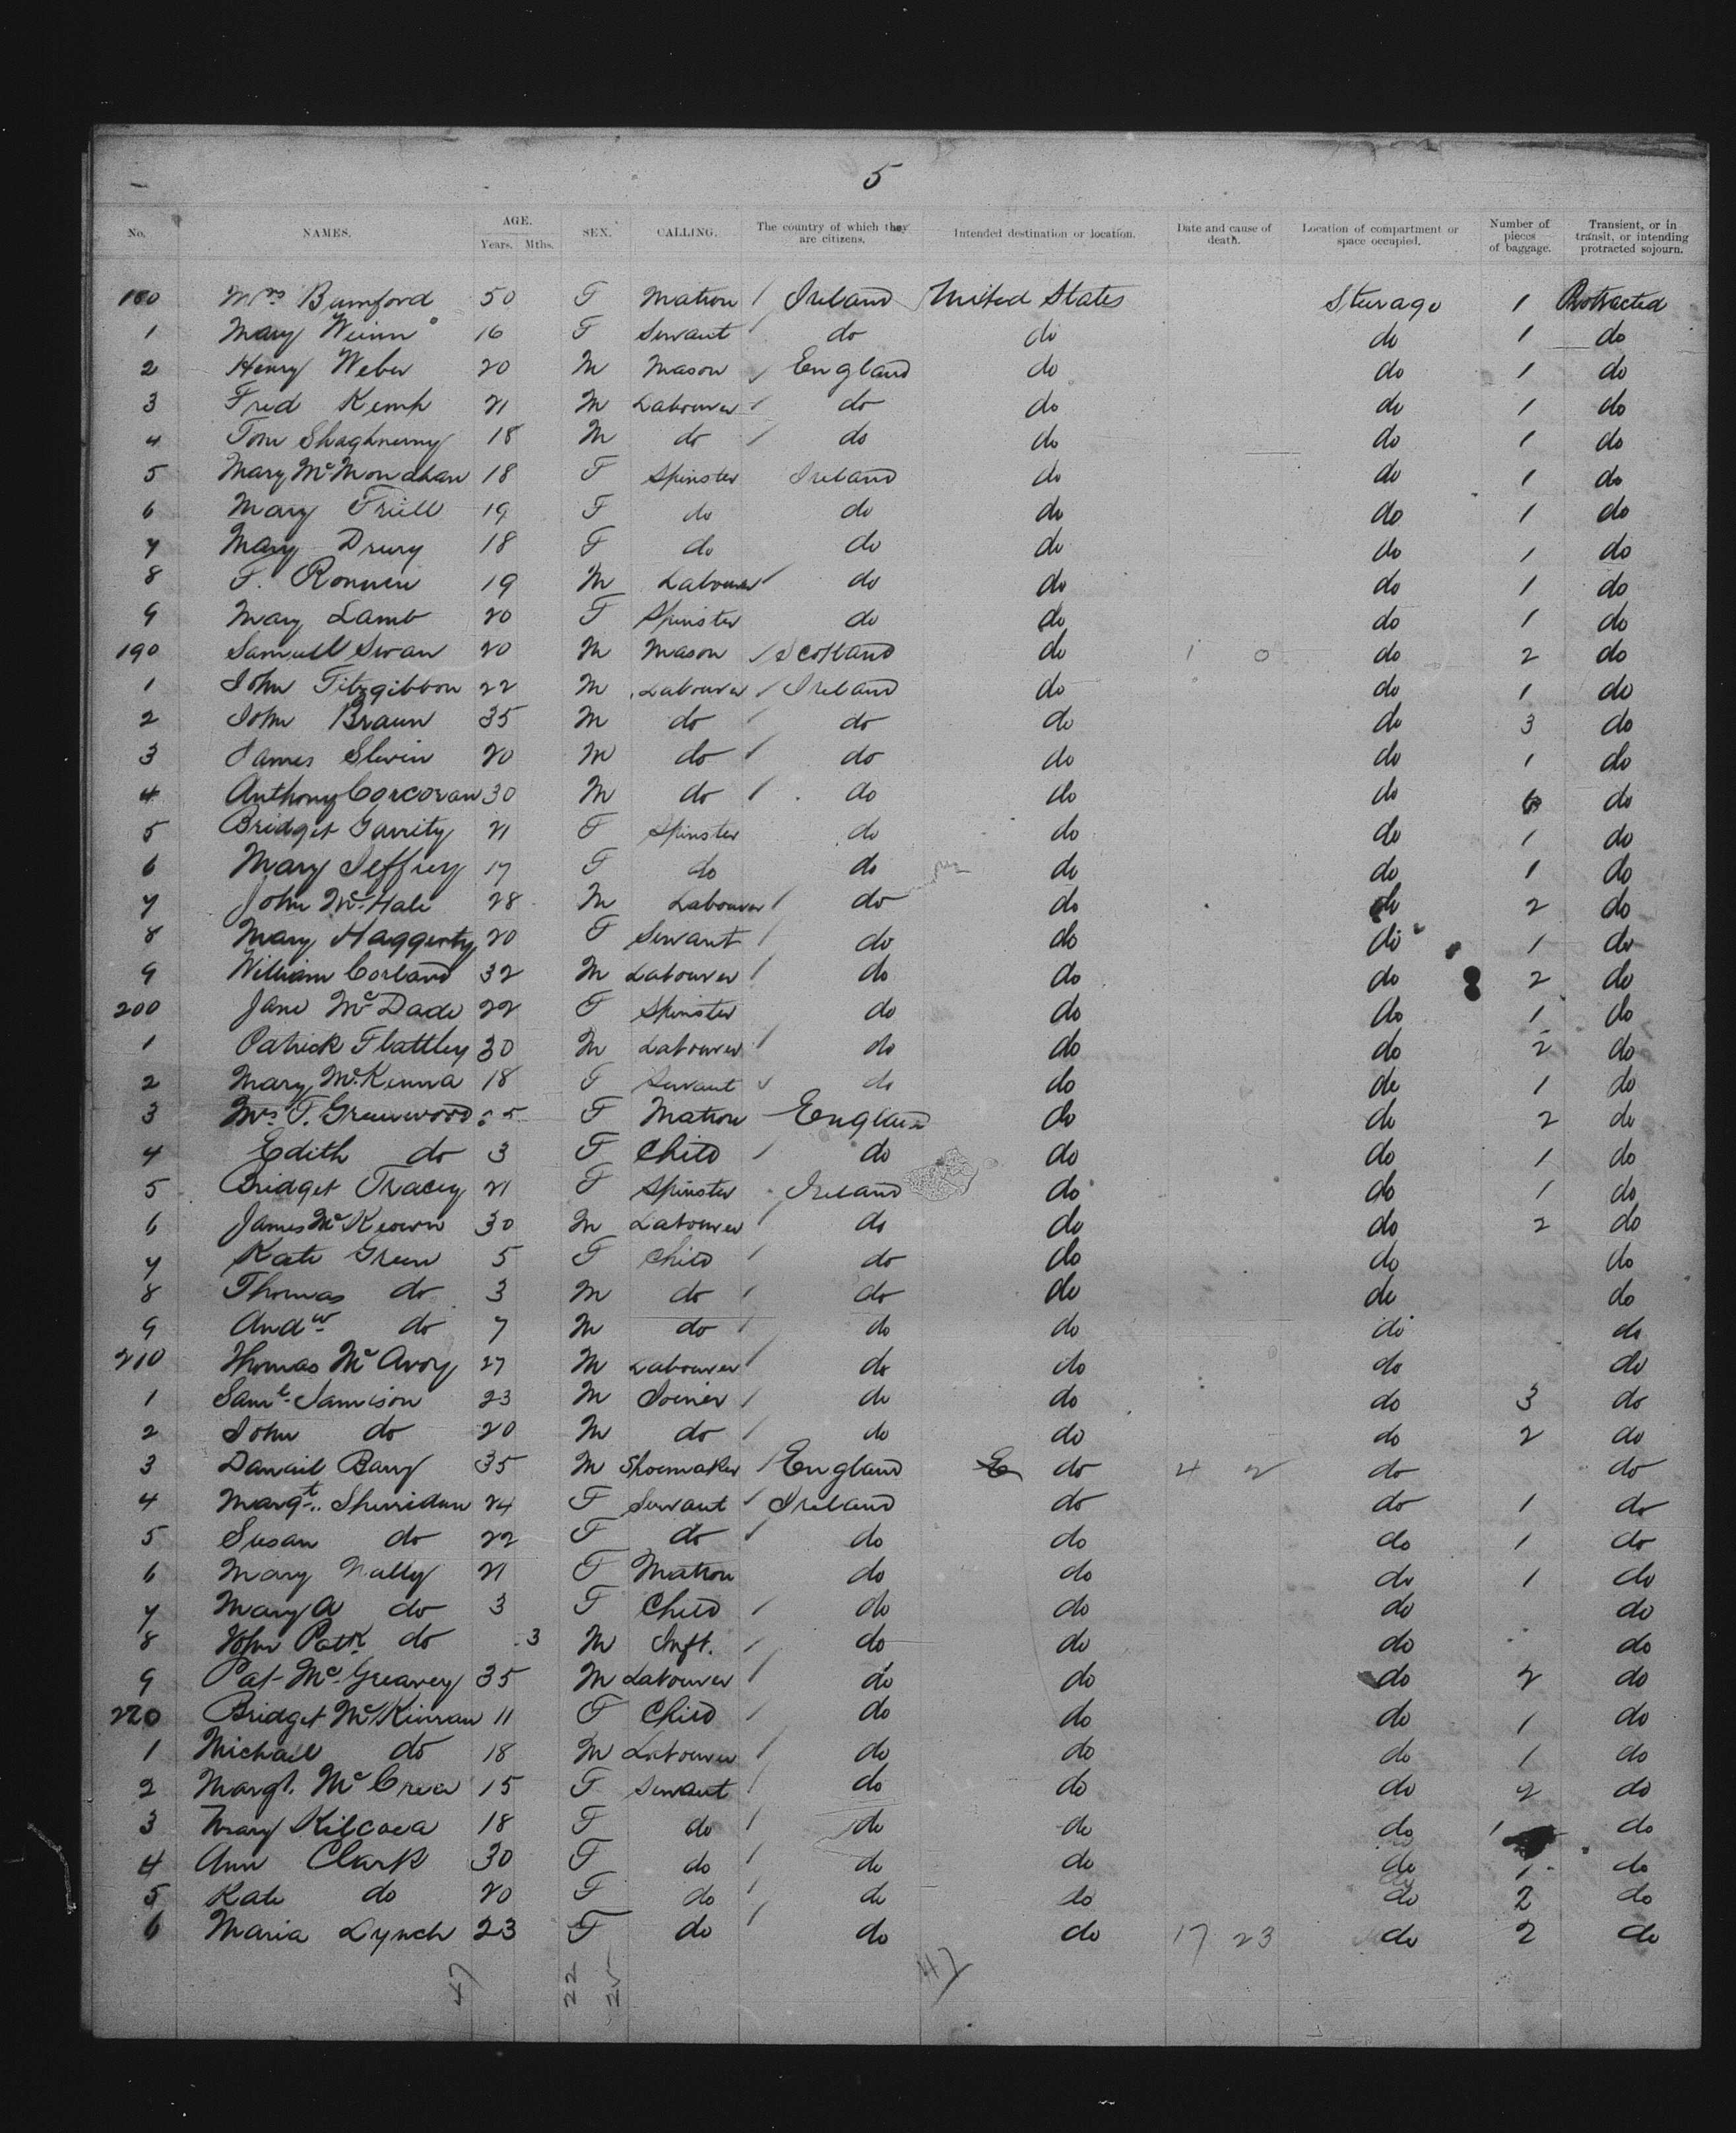 5
No. NAMES. AGE. Years. Mths. SEX. CALLING. The country of which they are citizens. Intended destination or location. Date and cause of death. Location of compartment or space occupied. Number of pieces of baggage. Transient, or in transit, or intending protracted sojourn.
180 Mrs Bamford 50 F Matron / Ireland United States Steerage 1 Protracted
1 Mary 16 F Servant / do do do 1 do
2 Henry Weber 20 M Mason / England do do 1 do
3 Fred Kemp 21 M Labourer / do do do 1 do
4 Tom Shaghnemy 18 M do / do do do 1 do
5 Mary McMonahan 18 F Spinster Ireland do do 1 do
6 Mary Friell 19 F do do do do 1 do
7 Mary Drury 18 F do do do do 1 do
8 F. 19 M Labourer / do do do 1 do
9 Mary Lamb 20 F Spinster do do do 1 do
190 Samuell Swan 20 M Mason / Scotland do 1 0 do 2 do
1 John Fitzgibbon 22 M Labourer / Ireland do do 1 do
2 John Braun 35 M do / do do do 3 do
3 James Slevin 20 M do / do do do 1 do
4 Anthony Corcoran 30 M do / do do do do
5 Bridget Garrity 21 F Spinster do do do 1 do
6 Mary Jeffrey 17 F do do do do 1 do
7 John McHale 28 M Labourer / do do do 2 do
8 Mary Haggerty 20 F Servant / do do do 1 do
9 William Corland 32 M Labourer / do do do 2 do
200 Jane McDade 22 F Spinster do do do 1 do
1 Patrick Flattley 30 M Labourer / do do do 2 do
2 Mary McKenna 18 F Servant do do do 1 do
3 Mrs F. Greenwood F Matron England do do 2 do
4 Edith do 3 F Child / do do do 1 do
5 Bridget Tracey 21 F Spinster Ireland do do 1 do
6 James McKeown 30 M Labourer / do do do 2 do
7 Kate Green 5 F Child / do do do do
8 Thomas do 3 M do / do do do do
9 Andw do 7 M do / do do do do
210 Thomas McAvoy 27 M Labourer / do do do do
1 Saml. Jamison 23 M Joiner / do do do 3 do
2 John do 20 M do / do do do 2 do
3 Danail Barry 35 M Shoemaker / England do 4 2 do do
4 Margt. Sherridan 24 F Servant / Ireland do do 1 do
5 Susan do 22 F do / do do do 1 do
6 Mary Nally 21 F Matron do do do 1 do
7 Mary A do 3 F Child / do do do do
8 John Patk do 3 M Inft. / do do do do
9 Pat McGreavey 35 M Labourer / do do do 2 do
220 Bridget McKinran 11 F Child / do do do 1 do
1 Michael do 18 M Labourer / do do do 1 do
2 Margt. McCrea 15 F Servant / do do do 2 do
3 Mary Kilcoca 18 F do / do do do 1 do
4 Ann Clark 30 F do / do do do 1 do
5 Kate do 20 F do / do do do 2 do
6 Maria Lynch 23 F do / do do 17 23 do 2 do
47 22 25 47